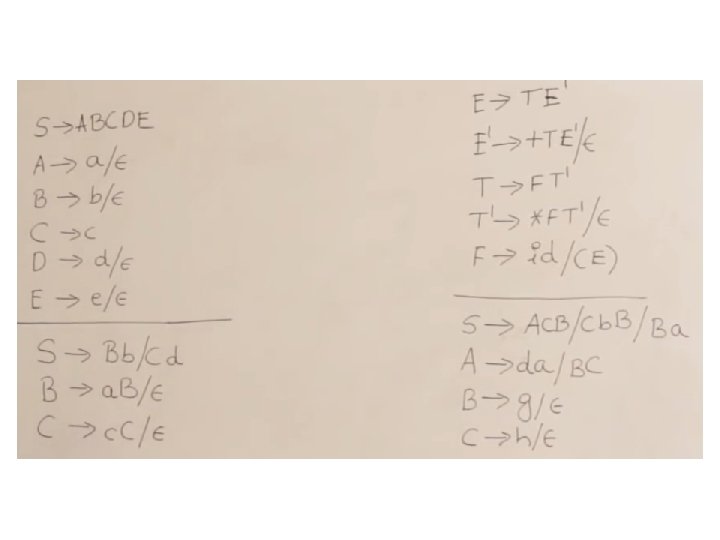 S→ABCDE
A→ a/ε
B → b/ε
C →c
D → d/ε
E → e/ε
S → Bb/Cd
B → aB/ε
C → cC/ε
E→ TE'
E'→+TE'/ε
T →FT'
T'→ *FT'/ε
F→ id/(E)
S→ ACB/CbB/Ba
A →da/BC
B→ g/ε
C→h/ε